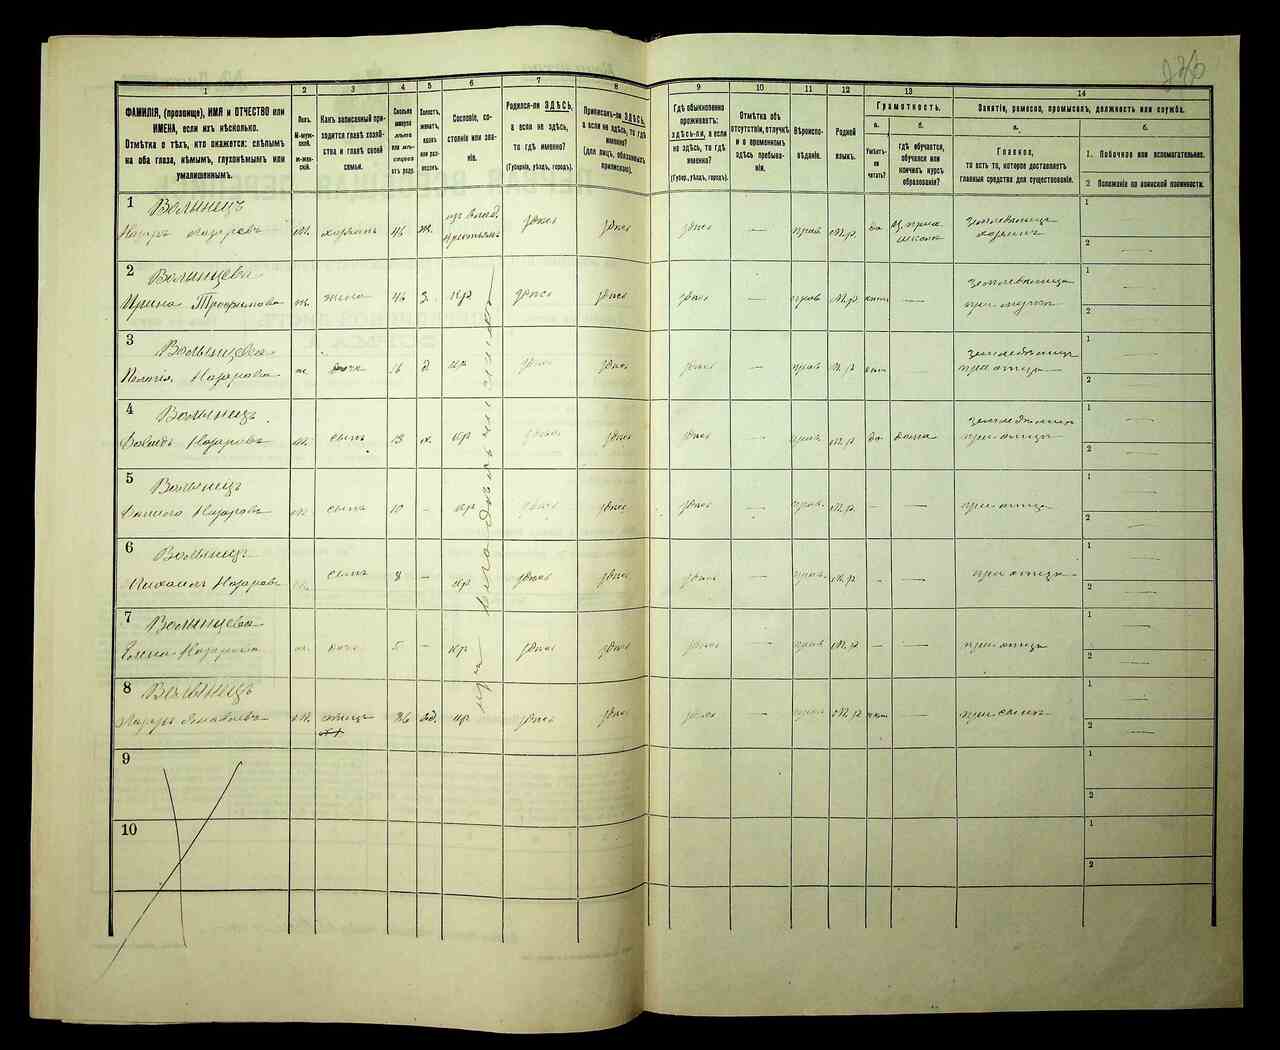 226
1
2
3
4
5
6
7
8
9
10
11
12
13
14
ФАМИЛІЯ, (прозвище), ИМЯ и ОТЧЕСТВО или ИМЕНА, если ихъ нѣсколько.
Отмѣтка о тѣхъ, кто окажется: слѣпымъ на оба глаза, нѣмымъ, глухонѣмымъ или умалишеннымъ.
Полъ.
М-муж-
ской.
ж-жен-
скій.
Какъ записанный при-
ходится главѣ хозяй-
ства и главѣ своей
семьи.
Сколько
минуло
лѣтъ
или мѣ-
сяцевъ
отъ роду.
Холостъ,
женатъ,
вдовъ
или раз-
веденъ.
Сословіе, со-
стояніе или зва-
ніе.
Родился-ли ЗДѢСЬ,
а если не здѣсь,
то гдѣ именно?
(Губернія, уѣздъ, городъ).
Приписанъ-ли ЗДѢСЬ,
а если не здѣсь, то гдѣ
именно?
(для лицъ, обязанныхъ
припискою).
Гдѣ обыкновенно
проживаетъ:
здѣсь-ли, а если
не здѣсь, то гдѣ
именно?
(Губер., уѣздъ, городъ).
Отмѣтка объ
отсутствіи, отлучкѣ
и о временномъ
здѣсь пребыва-
ніи.
Вѣроиспо-
вѣданіе.
Родной
языкъ.
Грамотность.
а.
б.
Умѣетъ-
ли
читать?
гдѣ обучается,
обучался или
кончилъ курсъ
образованія?
Занятіе, ремесло, промыселъ, должность или служба.
а.
б.
Главное,
то есть то, которое доставляетъ
главныя средства для существованія.
1. Побочное или вспомогательное.
2 Положеніе по воинской повинности.
1 Волынецъ
Назаръ Лазаревъ м. хозяинъ 46 ж. изъ влад. крестьянъ здѣсь здѣсь здѣсь — прав М.р. да школѣ
1 —
2 —
2 Волынцева
Ирина Трофимова ж. жена 46 з. кр. здѣсь здѣсь здѣсь — прав М.р — при мужѣ
1 —
2 —
3 Волынцева
Пелагія Назарова ж. дочь 16 д. кр здѣсь здѣсь здѣсь — прав М.р — при отцѣ
1 —
2 —
4 Волынецъ
Давидъ Назаровъ м. сынъ 13 х. кр здѣсь здѣсь здѣсь — прав. М.р да дома при отцѣ
1 —
2 —
5 Волынецъ
Данило Назаровъ м. сынъ 10 — кр здѣсь здѣсь здѣсь — прав. М.р. — — при отцѣ
1 —
2 —
6 Волынецъ
Михаилъ Назаровъ м. сынъ 8 — кр здѣсь здѣсь здѣсь — прав. М.р — — при отцѣ
1 —
2 —
7 Волынцева
Елена Назарова ж. дочь 5 — кр здѣсь здѣсь здѣсь — прав М.р — — при отцѣ
1 —
2 —
8 Волынецъ
Лазарь м. отецъ вд. кр здѣсь здѣсь здѣсь — прав М.р — при сынѣ
1 —
2 —
9
1
2
10
1
2